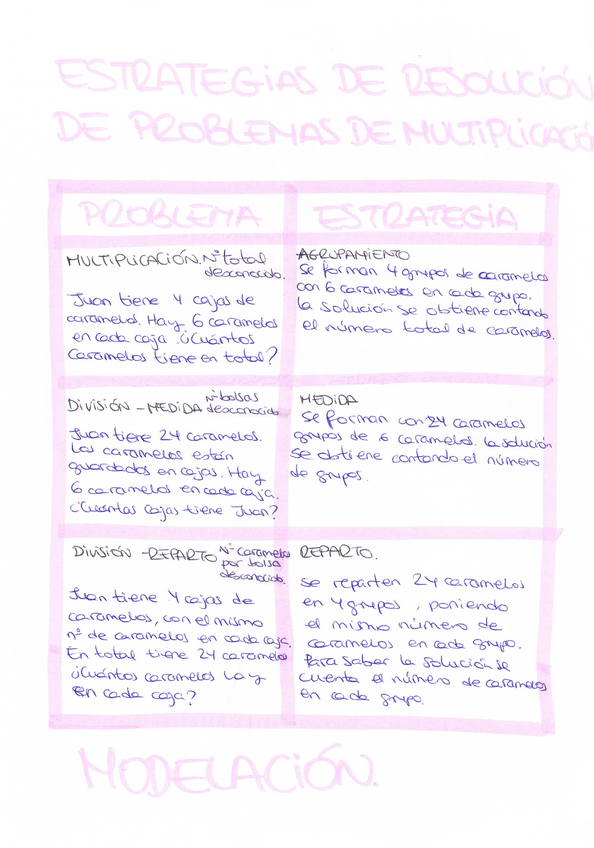 ESTRATEGIAS DE RESOLUCIÓN
DE PROBLEMAS DE MULTIPLICACIÓ
PROBLEMA
ESTRATEGIA
MULTIPLICACIÓN. Nº total
desconocido.
Juan tiene 4 cajas de
caramelos. Hay 6 caramelos
en cada caja. ¿Cuántos
Caramelos tiene en total?
AGRUPAMIENTO
Se forman 4 grupos de caramelos
con 6 caramelos en cada grupo.
la solución se obtiene contando
el número total de caramelos.
DIVISIÓN - MEDIDA Nº bolsas
desconocido
Juan tiene 24 caramelos.
Los caramelos están
guardados en cajas. Hay
6 caramelos en cada caja.
¿Cuántas cajas tiene Juan?
MEDIDA
Se forman con 24 caramelos
grupos de 6 caramelos. la solución
se obtiene contando el número
de grupos.
DIVISIÓN - REPARTO Nº caramelos
por bolsa
desconocido.
Juan tiene 4 cajas de
caramelos, con el mismo
nº de caramelos en cada caja.
En total tiene 24 caramelos
¿Cuántos caramelos hay
en cada caja?
REPARTO.
Se reparten 24 caramelos
en 4 grupos, poniendo
el mismo número de
caramelos en cada grupo.
Para saber la solución se
cuenta el número de caramelos
en cada grupo.
MODELACIÓN.